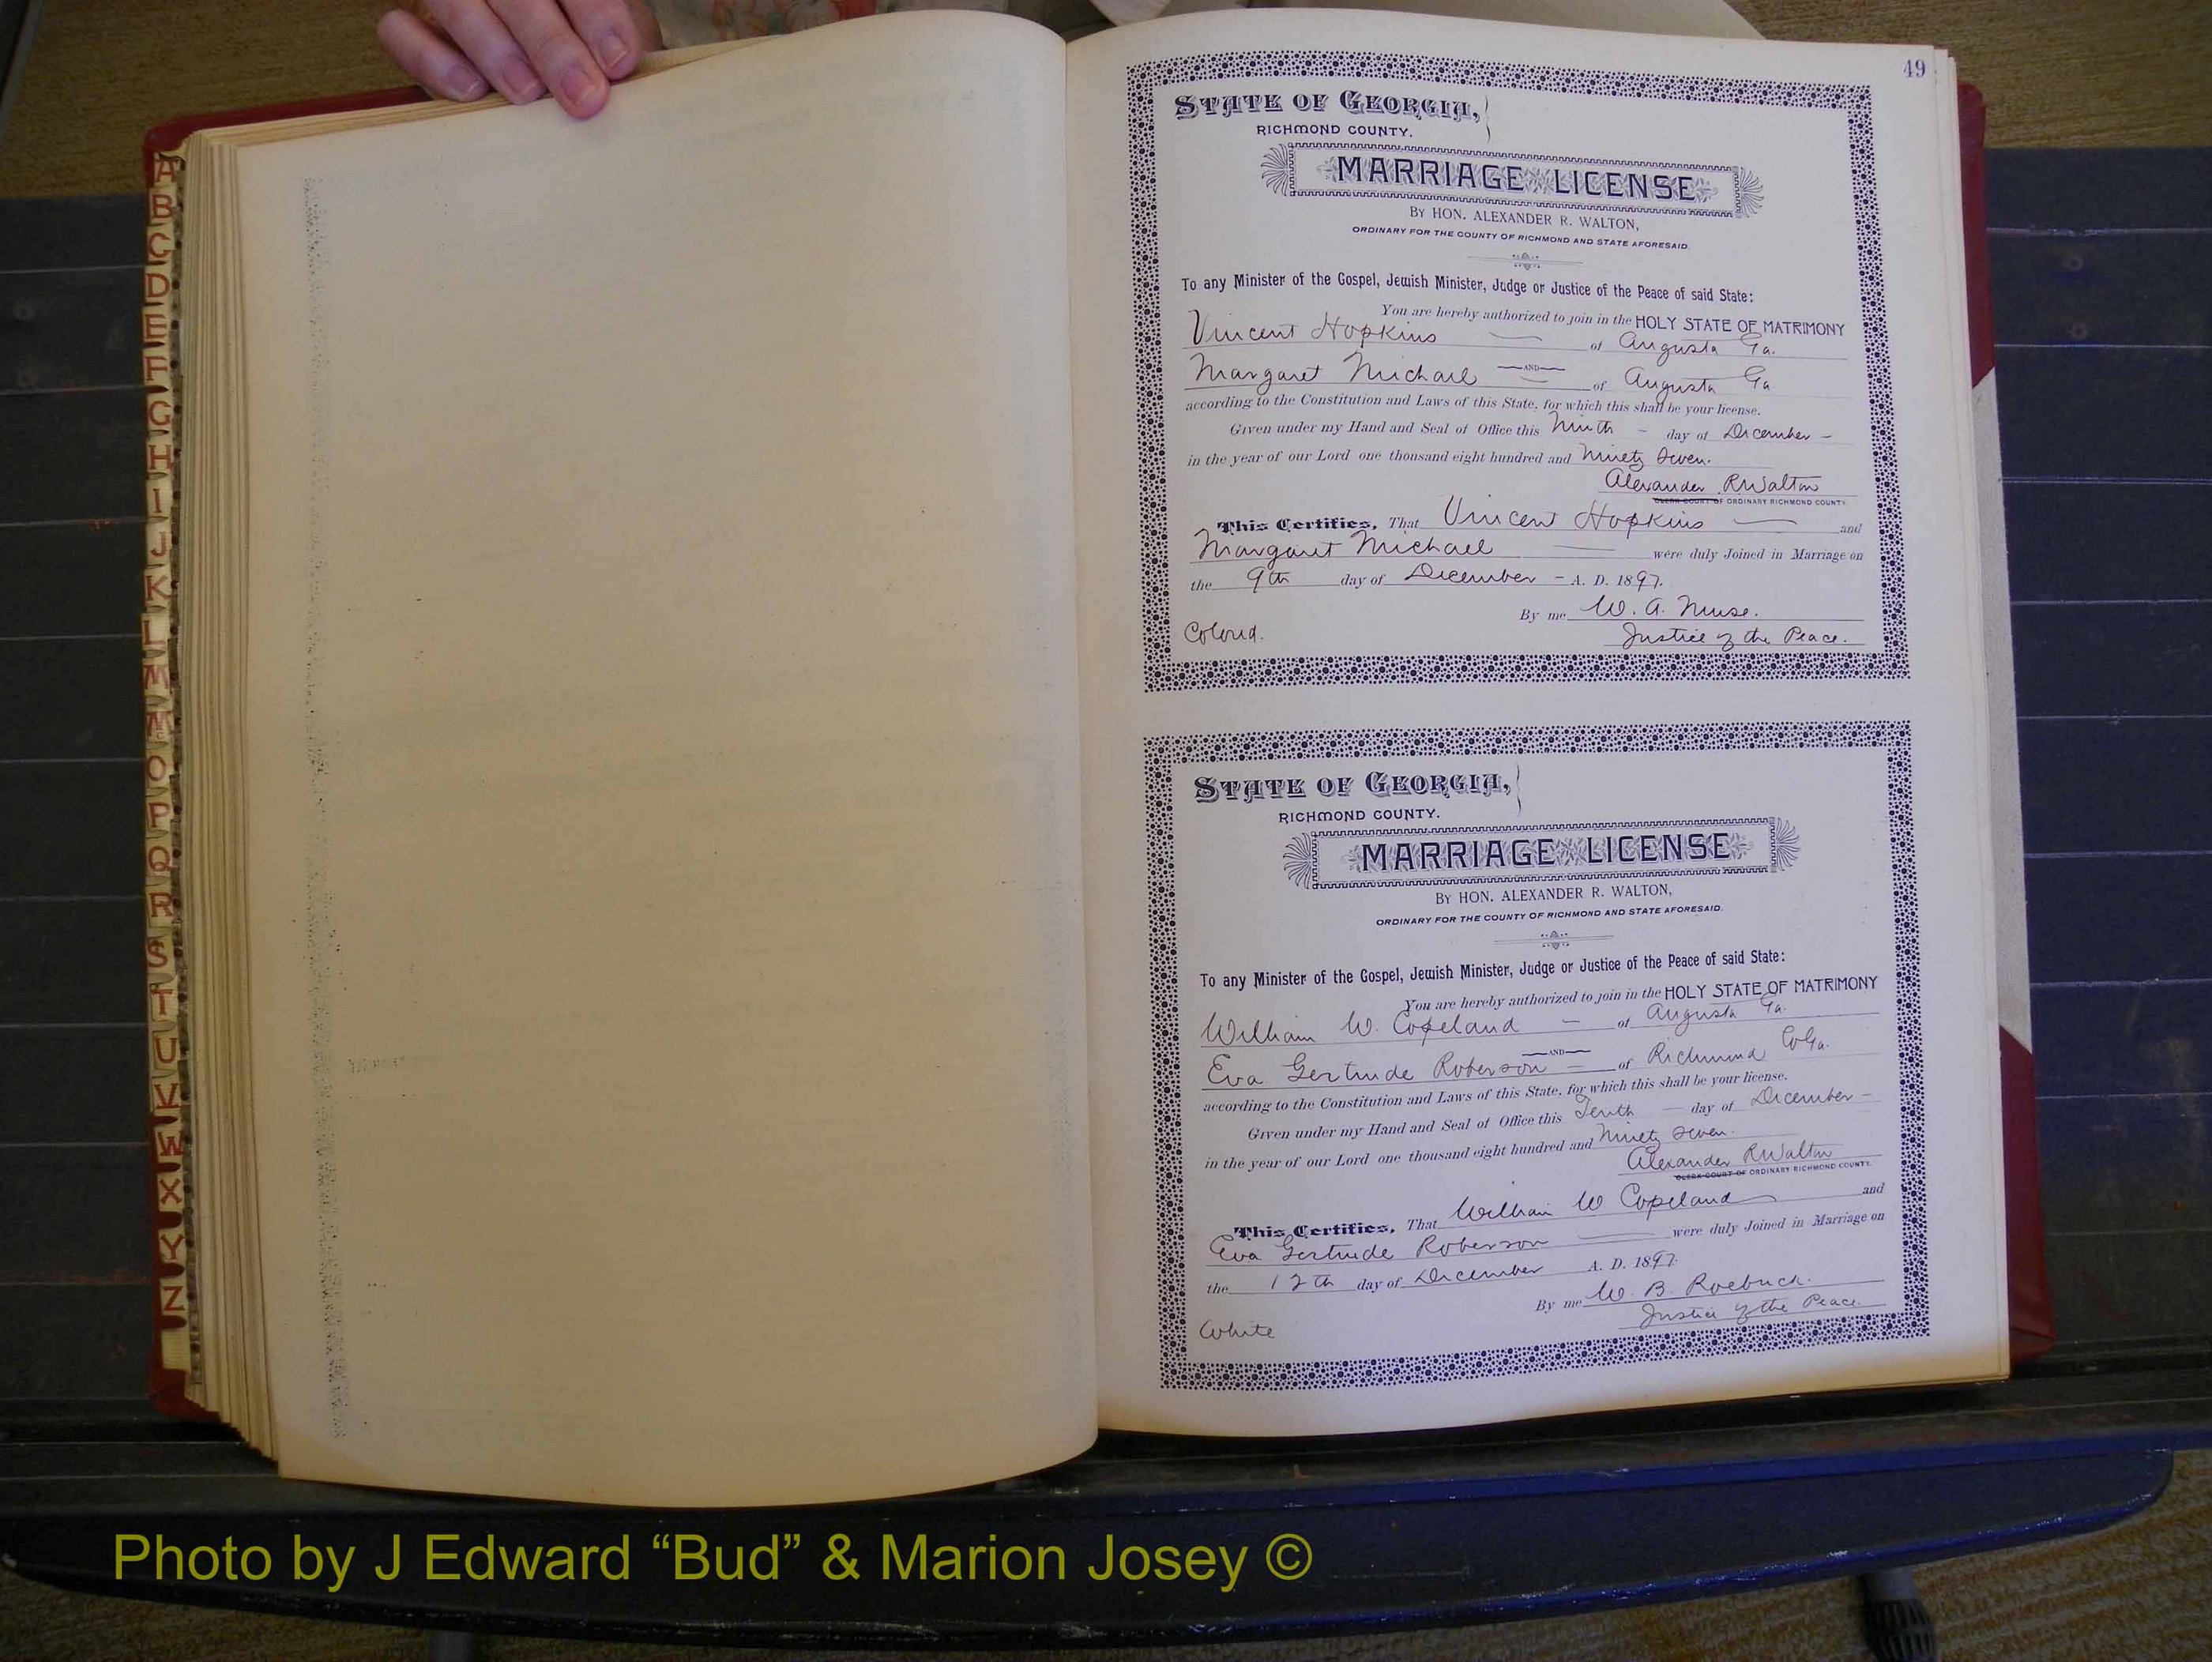 A
B
C
D
E
F
G
H
I
J
K
L
M
Mc
O
P
Q
R
S
T
U
V
W
X
Y
Z
49
STATE OF GEORGIA,
RICHMOND COUNTY.
MARRIAGE LICENSE
BY HON. ALEXANDER R. WALTON,
ORDINARY FOR THE COUNTY OF RICHMOND AND STATE AFORESAID.
To any Minister of the Gospel, Jewish Minister, Judge or Justice of the Peace of said State:
You are hereby authorized to join in the HOLY STATE OF MATRIMONY
Vincent Hopkins — of Augusta Ga.
—AND—
Margaret Michael — of Augusta Ga
according to the Constitution and Laws of this State, for which this shall be your license.
Given under my Hand and Seal of Office this Ninth – day of December –
in the year of our Lord one thousand eight hundred and Ninety Seven.
Alexander R Walton
CLERK COURT OF ORDINARY RICHMOND COUNTY.
This Certifies, That Vincent Hopkins — and
Margaret Michael — were duly Joined in Marriage on
the 9th day of December – A. D. 1897.
By me W. A. Muse.
Colored. Justice of the Peace.
STATE OF GEORGIA,
RICHMOND COUNTY.
MARRIAGE LICENSE
BY HON. ALEXANDER R. WALTON,
ORDINARY FOR THE COUNTY OF RICHMOND AND STATE AFORESAID.
To any Minister of the Gospel, Jewish Minister, Judge or Justice of the Peace of said State:
You are hereby authorized to join in the HOLY STATE OF MATRIMONY
William W. Copeland – of Augusta Ga.
—AND—
Eva Gertrude Roberson – of Richmond Co Ga.
according to the Constitution and Laws of this State, for which this shall be your license.
Given under my Hand and Seal of Office this Tenth – day of December –
in the year of our Lord one thousand eight hundred and Ninety Seven.
Alexander R Walton
CLERK COURT OF ORDINARY RICHMOND COUNTY.
This Certifies, That William W Copeland — and
Eva Gertrude Roberson — were duly Joined in Marriage on
the 12th day of December A. D. 1897.
By me W. B. Roebuck.
White Justice of the Peace.
Photo by J Edward “Bud” & Marion Josey ©